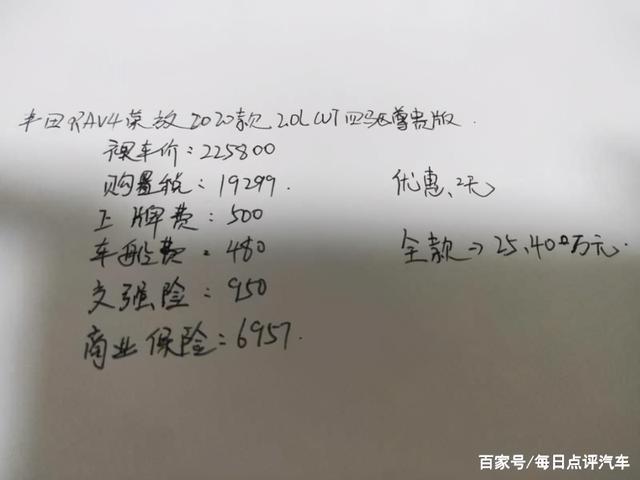 丰田RAV4荣放2020款2.0L CVT四驱尊贵版.
裸车价:225800
购置税:19299.
优惠、2天
上牌费:500
车船费:480
全款→25.400万元.
交强险:950
商业保险:6957.
百家号/每日点评汽车